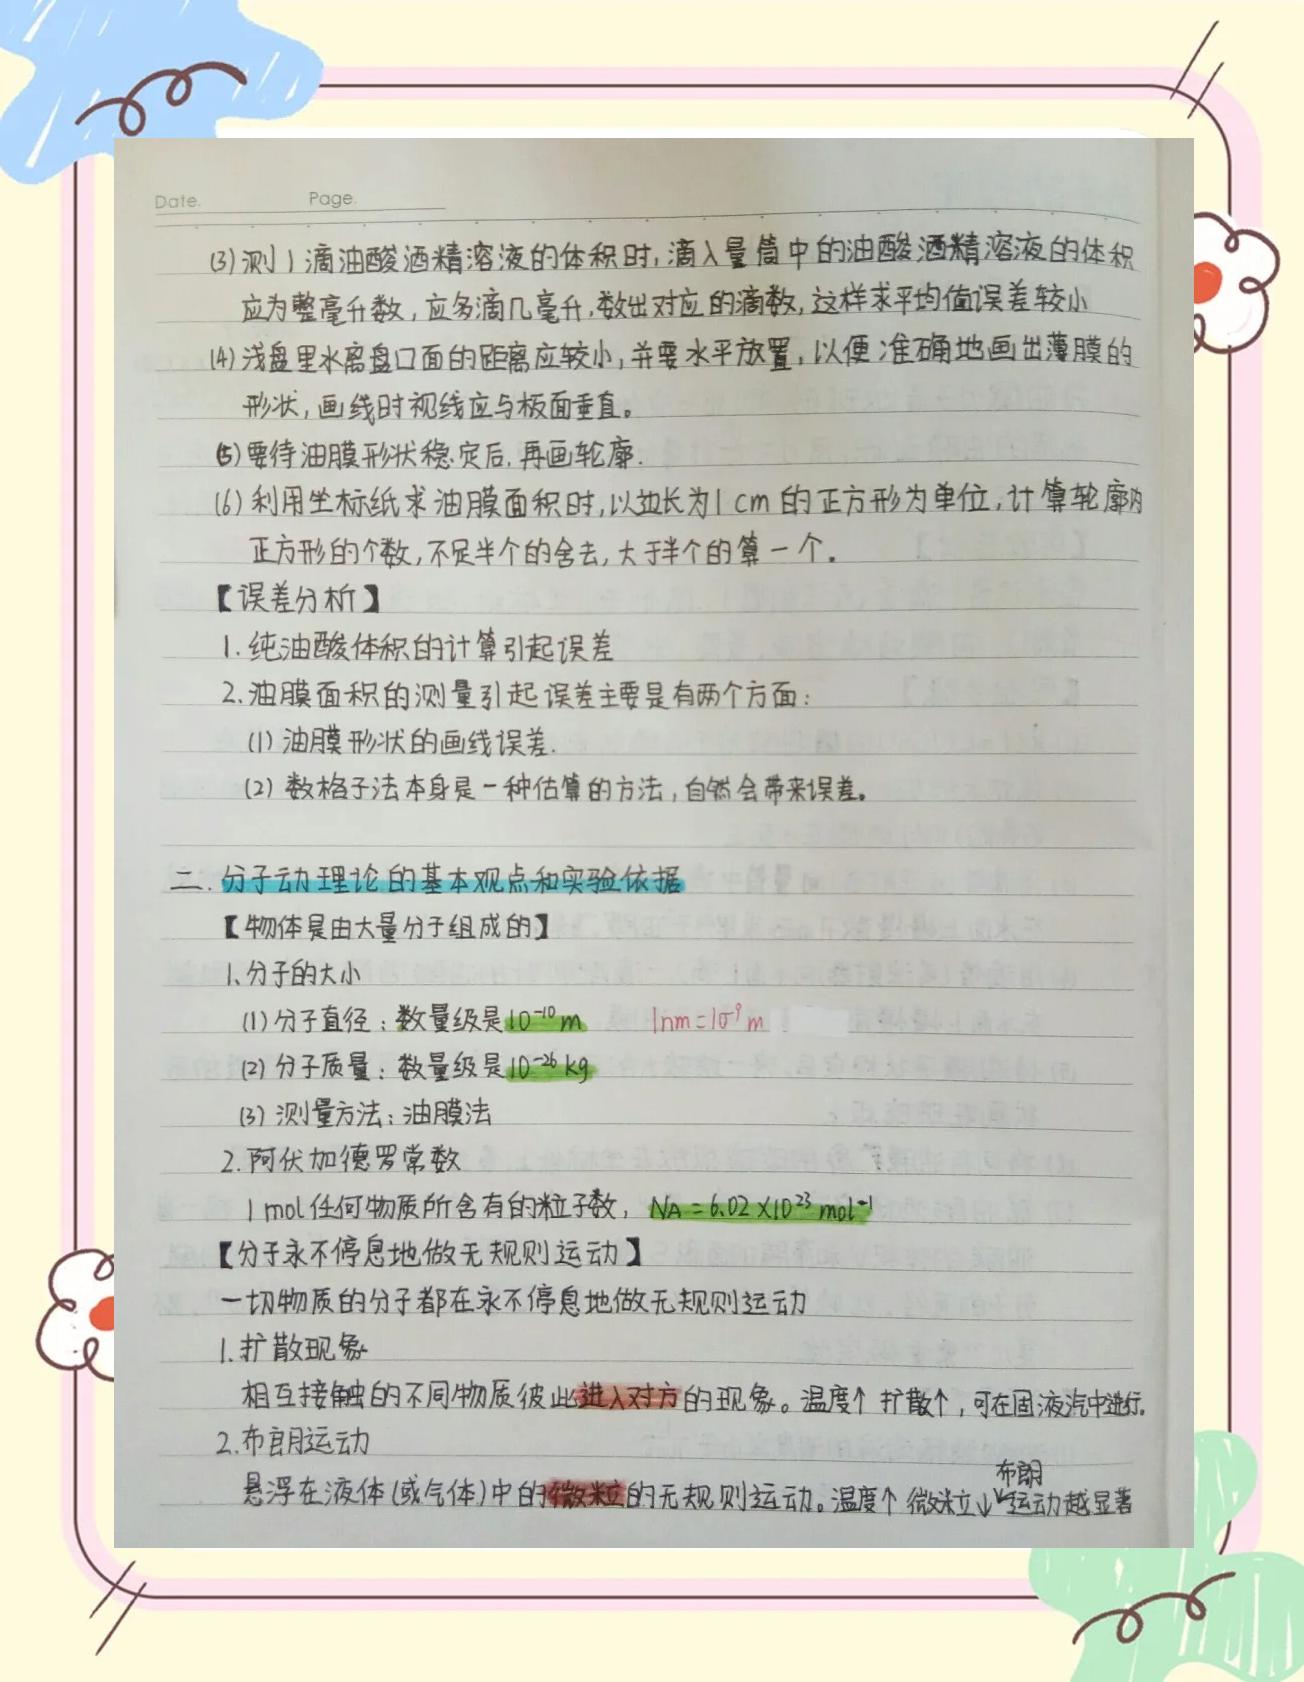 Date. Page.
(3) 测1滴油酸酒精溶液的体积时,滴入量筒中的油酸酒精溶液的体积
应为整毫升数,应多滴几毫升,数出对应的滴数,这样求平均值误差较小
(4) 浅盘里水离盘口面的距离应较小,并要水平放置,以便准确地画出薄膜的
形状,画线时视线应与板面垂直。
(5) 要待油膜形状稳定后,再画轮廓.
(6) 利用坐标纸求油膜面积时,以边长为1cm的正方形为单位,计算轮廓内
正方形的个数,不足半个的舍去,大于半个的算一个.
【误差分析】
1. 纯油酸体积的计算引起误差
2. 油膜面积的测量引起误差主要是有两个方面:
(1) 油膜形状的画线误差.
(2) 数格子法本身是一种估算的方法,自然会带来误差。
二. 分子动理论的基本观点和实验依据
【物体是由大量分子组成的】
1. 分子的大小
(1) 分子直径:数量级是10⁻¹⁰m 1nm=10⁻⁹m
(2) 分子质量:数量级是10⁻²⁶kg
(3) 测量方法:油膜法
2. 阿伏加德罗常数
1mol任何物质所含有的粒子数, NA=6.02×10²³mol⁻¹
【分子永不停息地做无规则运动】
一切物质的分子都在永不停息地做无规则运动
1. 扩散现象
相互接触的不同物质彼此进入对方的现象。温度↑ 扩散↑,可在固液汽中进行.
2. 布朗运动
悬浮在液体(或气体)中的微粒的无规则运动。温度↑ 微粒↓布朗运动越显著